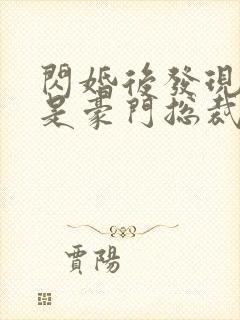 閃婚後發現
是豪門總裁
賈陽